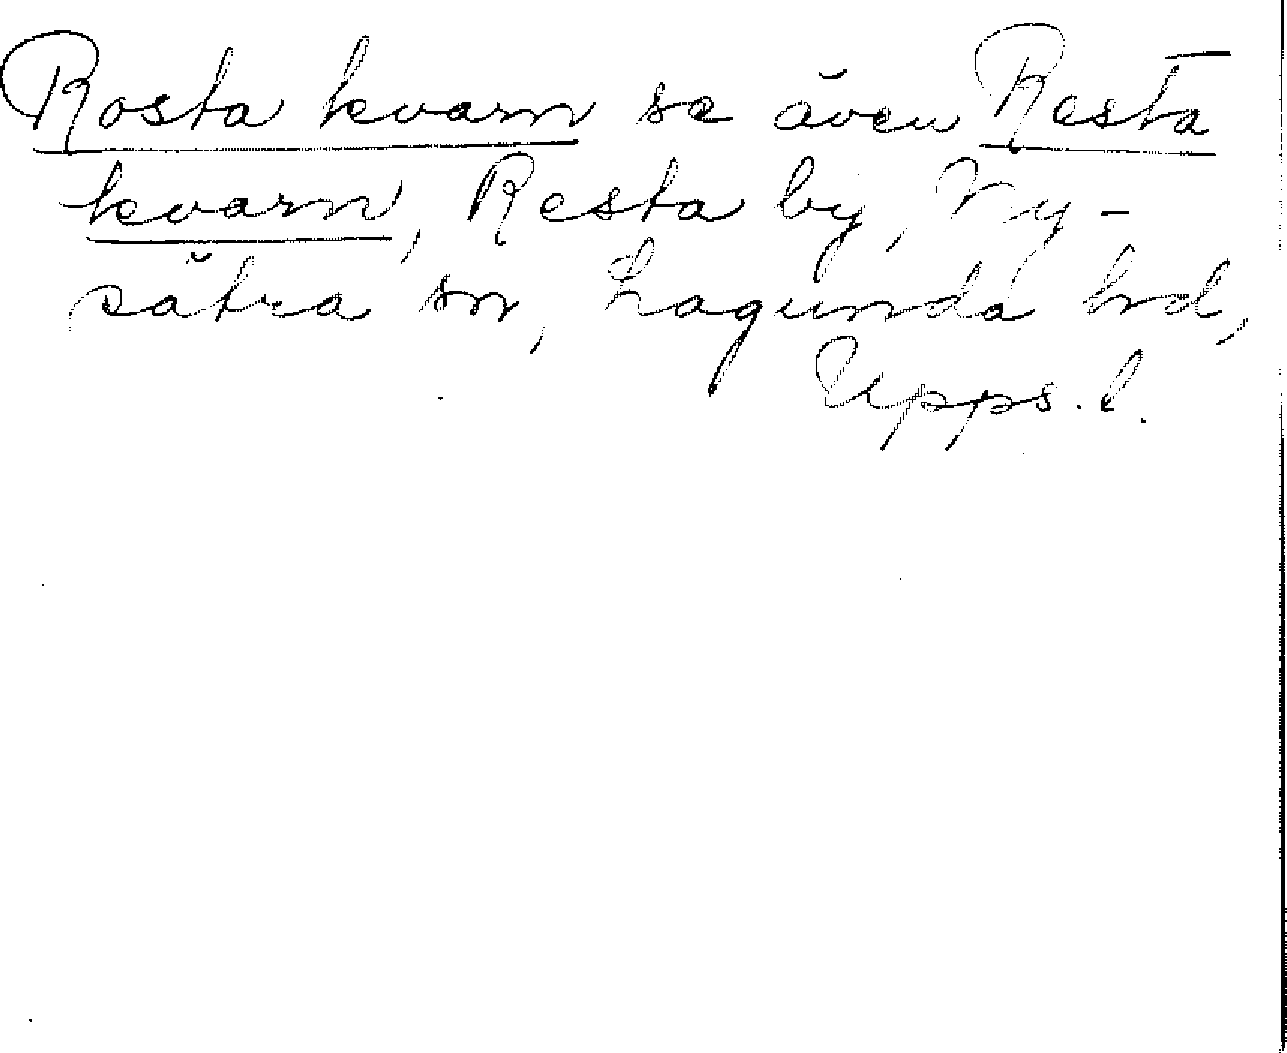 Rosta kvarn se även Resta
kvarn, Resta by, Ny-
sätra sn, Lagunda hd,
Upps. l.